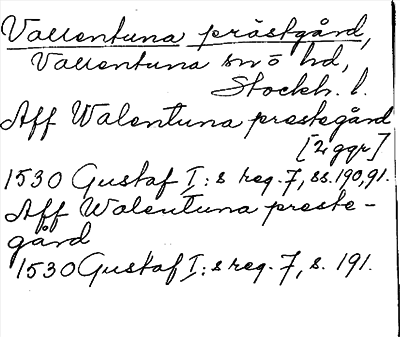 Vallentuna prästgård,
Vallentuna snö hd,
Stockh. l.
Aff Walentuna prestegård
[2 ggr]
1530 Gustaf I:s reg. 7, ss. 190, 91.
Aff Walentuna preste-
gård
1530 Gustaf I:s reg. 7, s. 191.